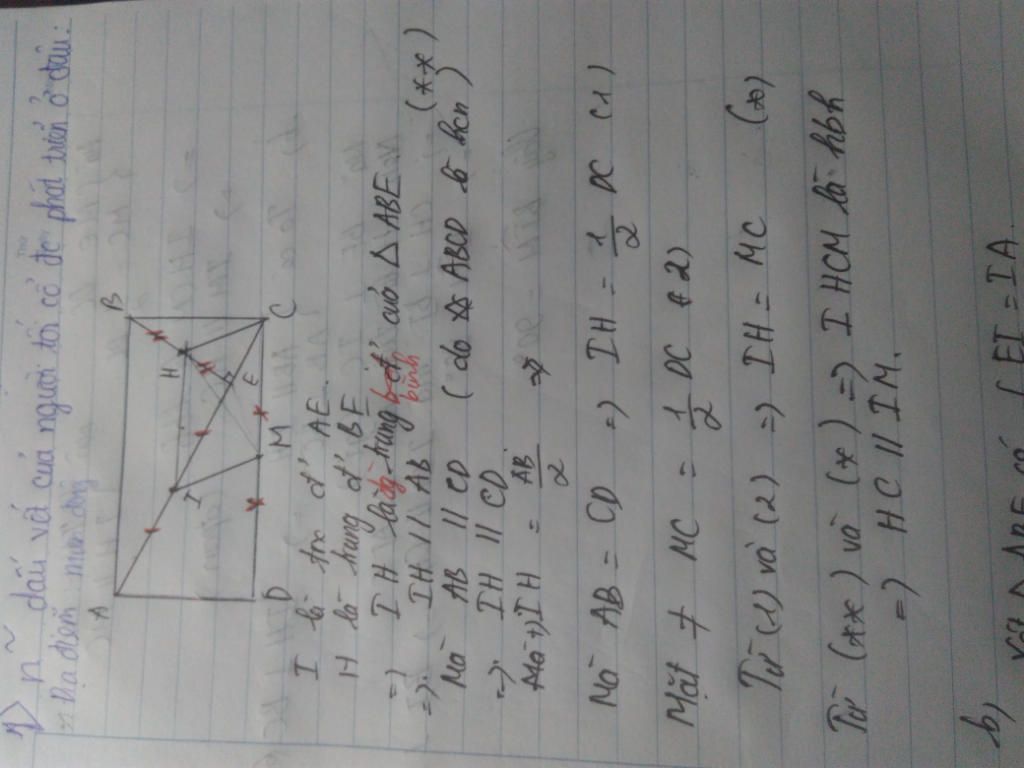 1) n~ dấu vá của người tối cổ đc phát triển ở đâu:
A
B
H
I
E
D
M
C
I là trc đ' AE
H là trung đ' BE
=) IH là đg trung bình của Δ ABE
=) IH // AB (**)
Mà AB // CD (do ABCD là hcn)
=) IH // CD
Mà +) IH = AB/2
Mà AB = CD =) IH = 1/2 DC (1)
Mặt ≠ MC = 1/2 DC (2)
Từ (1) và (2) =) IH = MC (*)
Từ (**) và (*) =) IHCM là hbh
=) HC // IM.
b) Xét Δ ABE có { EI = IA.